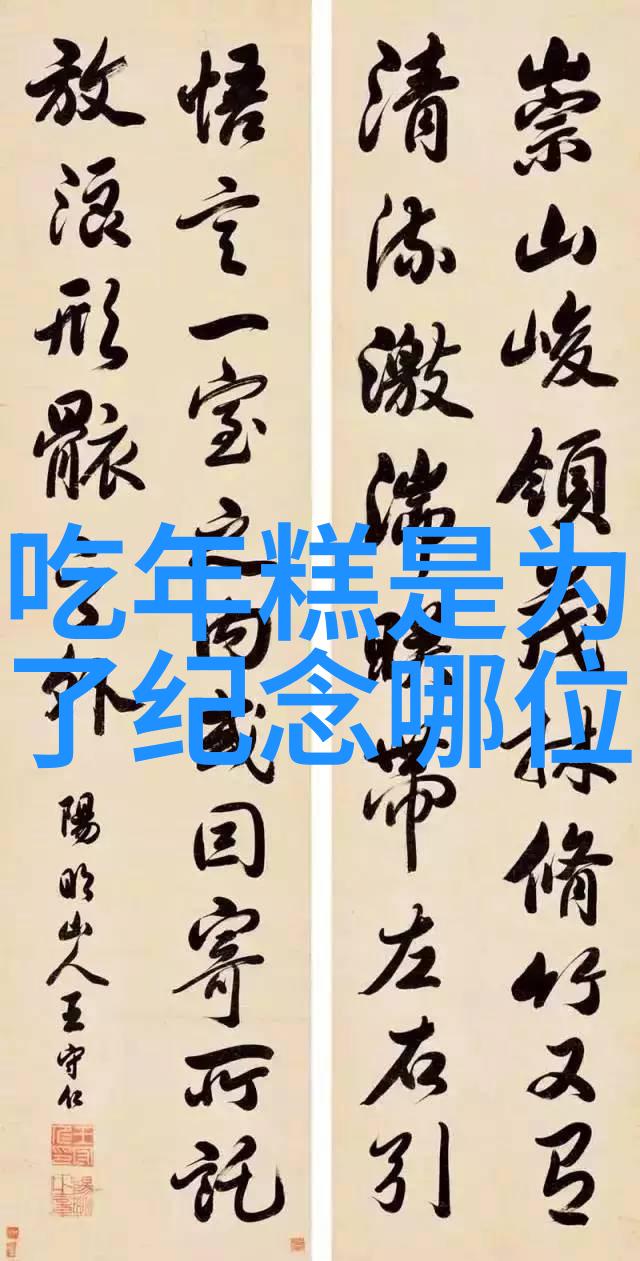 崇山峻領茂林脩竹又有
清流激湍暎帶左右引
悟言一室之内或因寄所託
放浪形骸之外
陽明山人王守仁
吃年糕是为
了纪念哪位